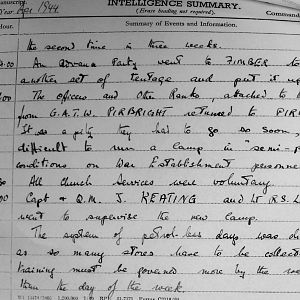 INTELLIGENCE SUMMARY.
(Erase heading not required).
Year Mar 1944
Summary of Events and Information.
the second time in three weeks.
An advance Party went to FIMBER to
another set of tentage and put it up
The officers and Other Ranks, attached to
from G.A.T.W. PIRBRIGHT returned to
It is a pity they had to go so soon,
difficult to run a camp in "semi-p
conditions on War Establishment personne
All church services were voluntary.
Capt & Q.M. J. KEATING and
went to supervise the new camp.
The system of petrol-less days was
as so many stores have to be collec
training must be governed more by the
than the day of the week.